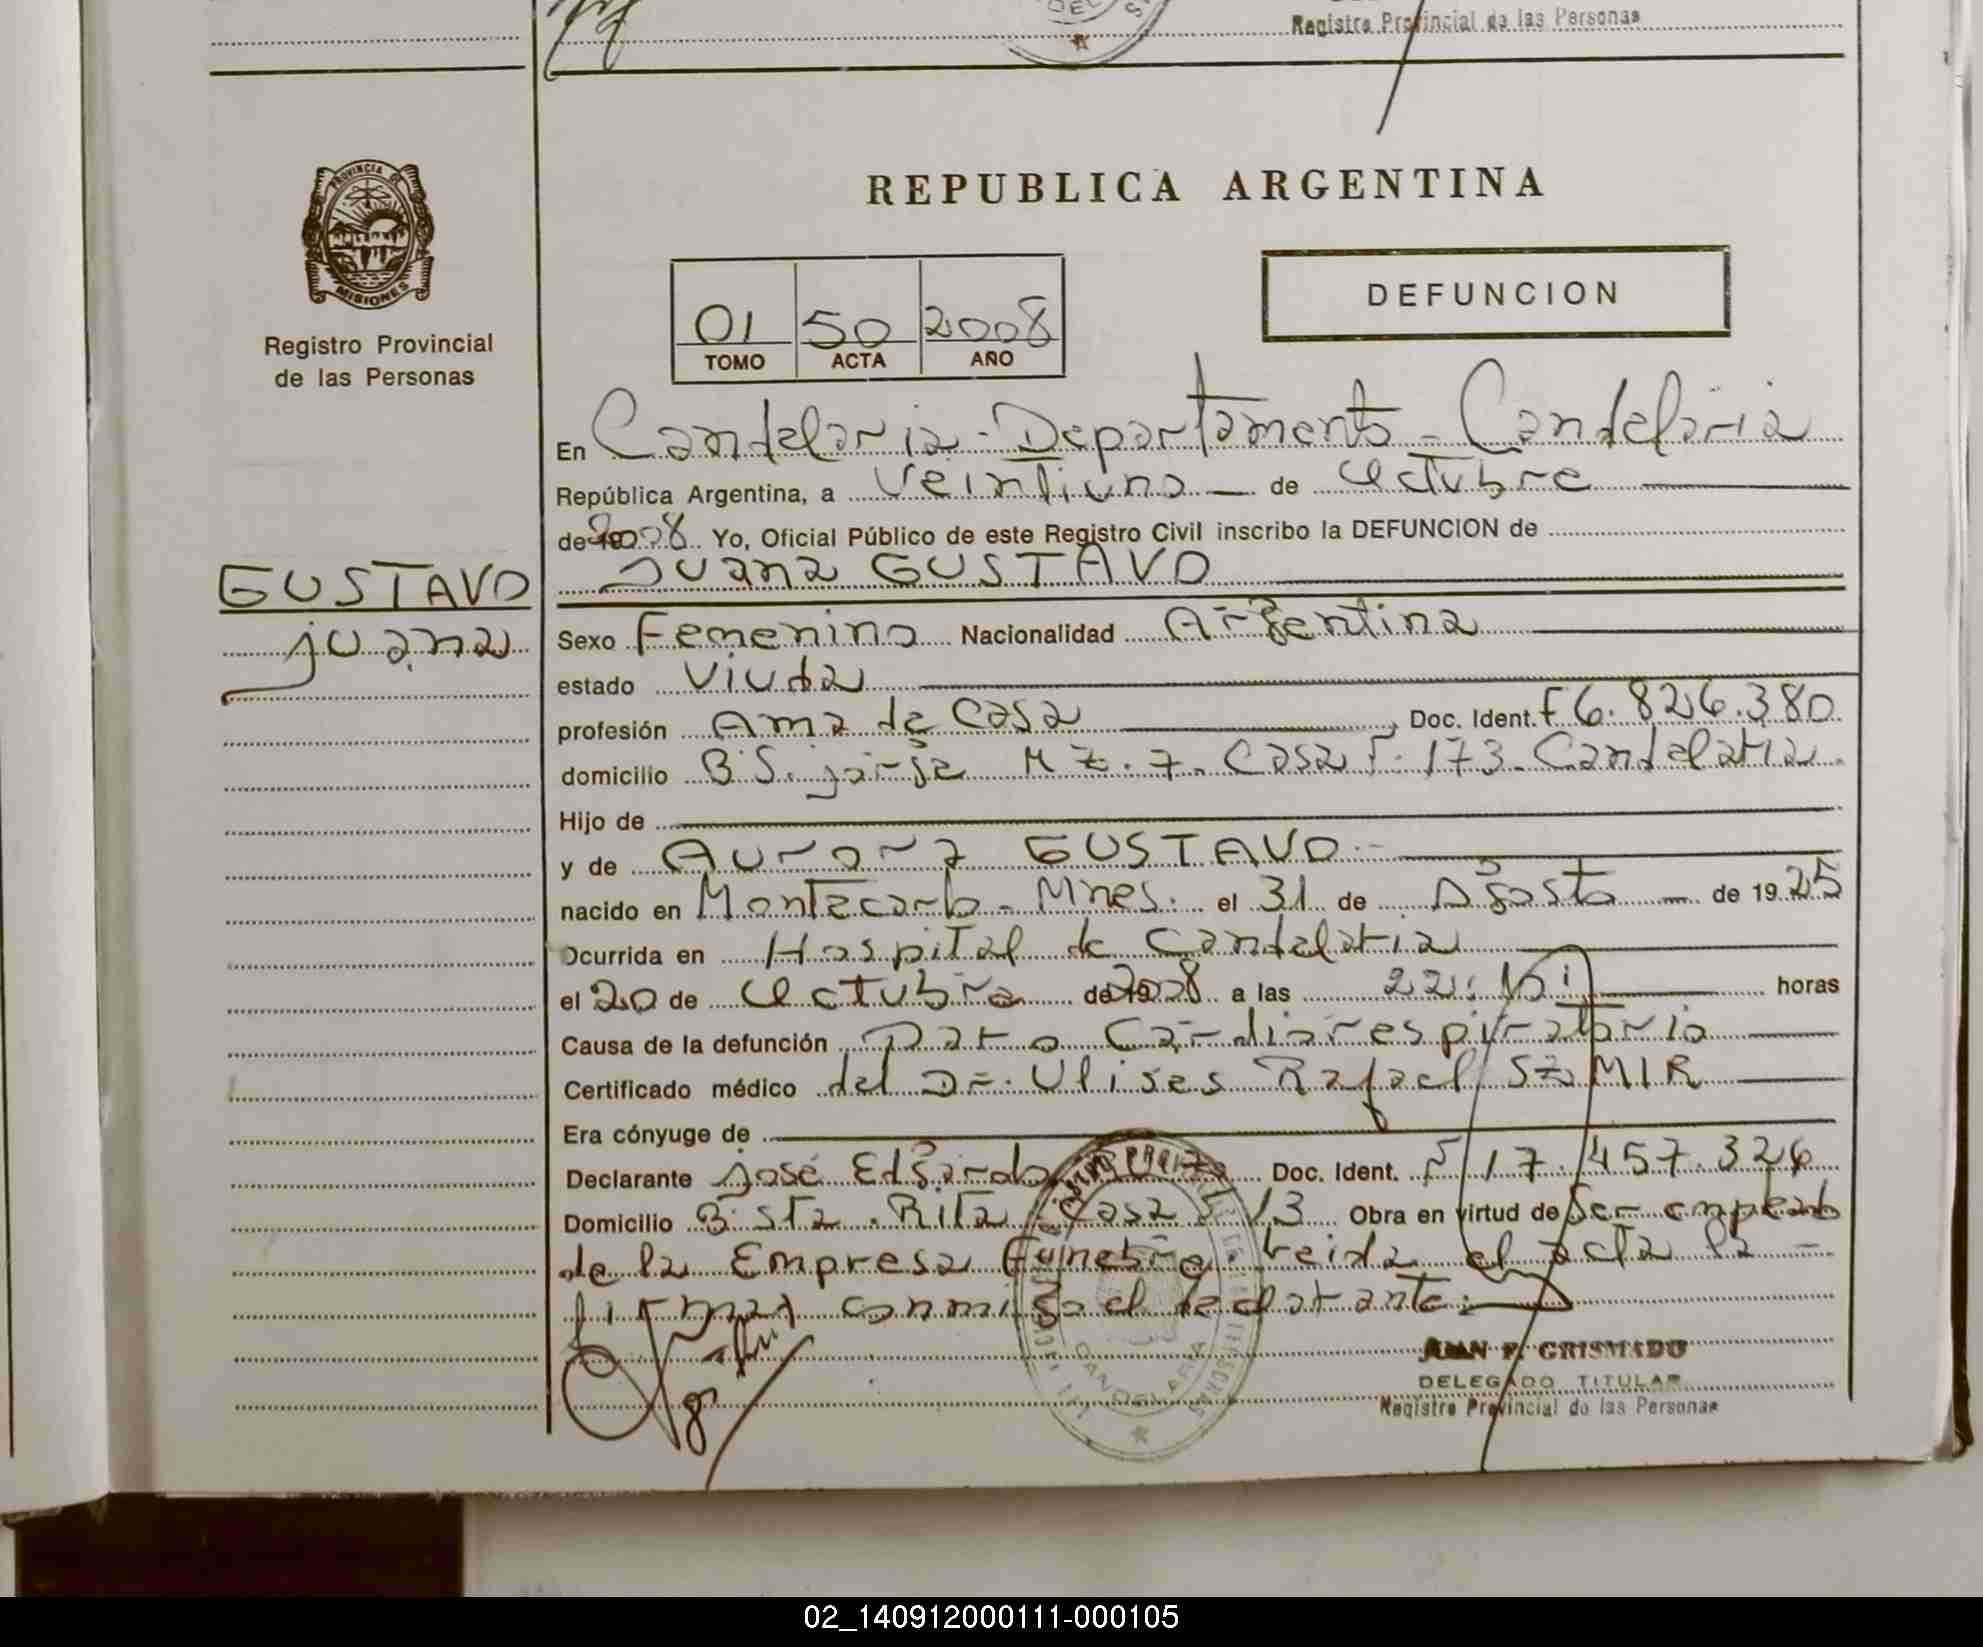 Registro Provincial de las Personas
PROVINCIA DE
MISIONES
Registro Provincial
de las Personas
REPUBLICA ARGENTINA
DEFUNCION
01 50 2008
TOMO ACTA AÑO
En Candelaria - Departamento - Candelaria
República Argentina, a veintiuno de Octubre
de 2008 Yo, Oficial Público de este Registro Civil inscribo la DEFUNCION de
Juana GUSTAVO
GUSTAVO
juana
Sexo Femenino Nacionalidad Argentina
estado Viuda
profesión Ama de Casa, Doc. Ident. F 6.826.380
domicilio B S. jorge Mz. 7. Casa 173 - Candelaria.
Hijo de
y de Aurora GUSTAVO.-
nacido en Montecarlo - Mnes. el 31 de Agosto de 1925
Ocurrida en Hospital de Candelaria
el 20 de Octubre de 2008 a las 22: horas
Causa de la defunción Paro Cardiorespiratorio
Certificado médico del Dr. Ulises Rafael SZMIR
Era cónyuge de
Declarante josé Edgardo Doc. Ident. 17.457.326
Domicilio B Sta. Rita Casa 13 Obra en virtud de Ser empleado
de la Empresa Funebre. Leida el acta la -
firma conmigo el declarante.
JUAN F. GRISMADO
DELEGADO TITULAR
Registro Provincial de las Personas
CANDELARIA
02_140912000111-000105